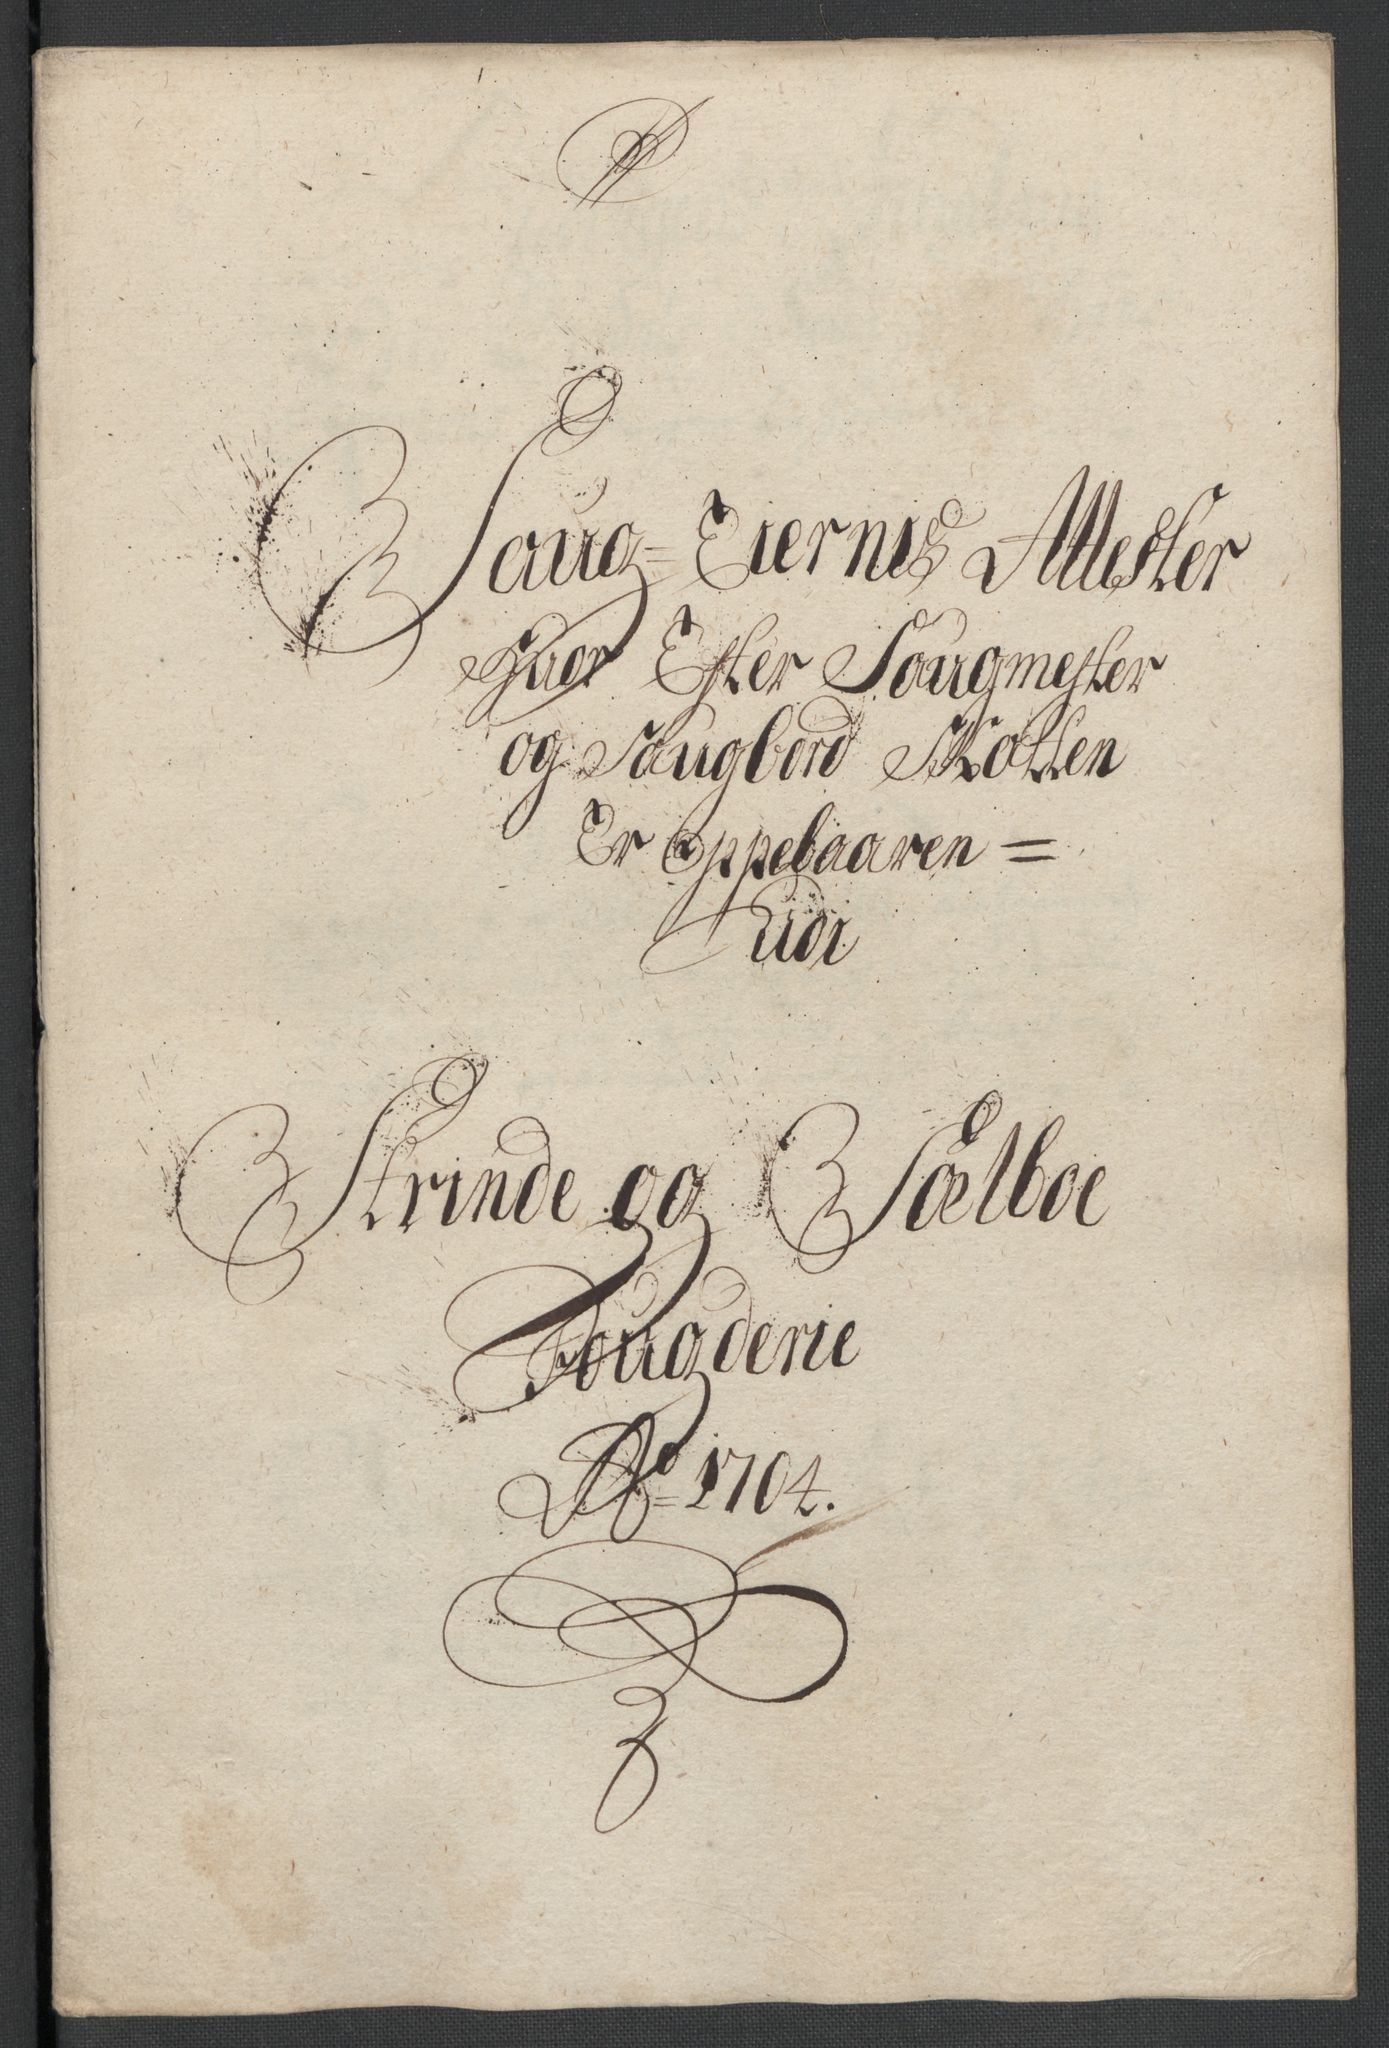 Saug= Eiernis Attester
Huor Efter Saugmester
og Saugbord Skatten
Er Oppebaaren =
Udi
Strinde og Sælboe
Fougderie
Ao= 1704.